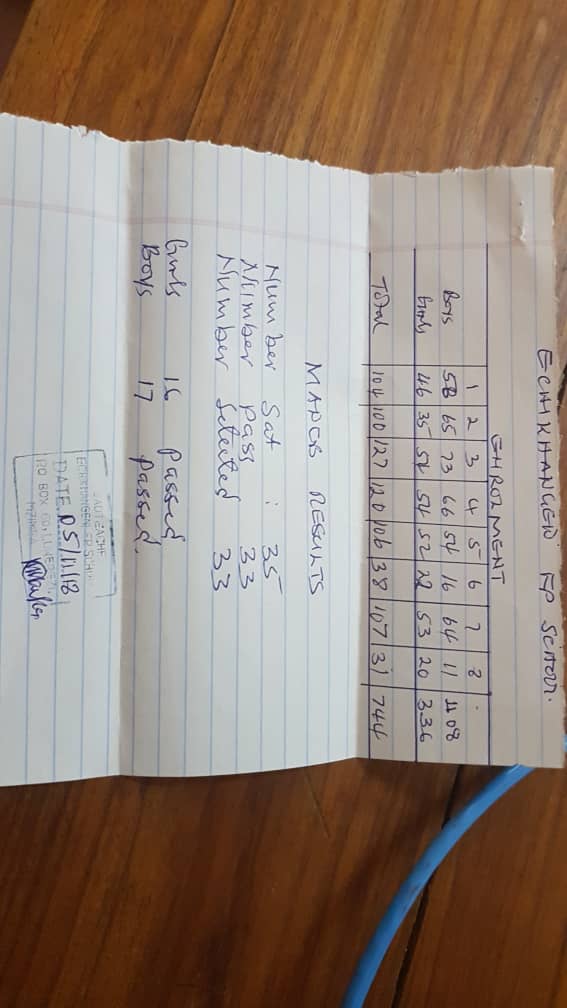 ECHIKHANGENI FP SCHOOL.
ENROLMENT
1 2 3 4 5 6 7 8
Boys 58 65 73 66 54 16 64 11 408
Girls 46 35 54 54 52 22 53 20 336
Total 104 100 127 120 106 38 107 31 744
MANEB RESULTS
Number Sat : 35
Number pass 33
Number Selected 33
Girls 16 passed
Boys 17 passed.
ECHIKHANGENI F.P SCH
DATE 05/11/18
P.O. BOX 60,
MZIMBA